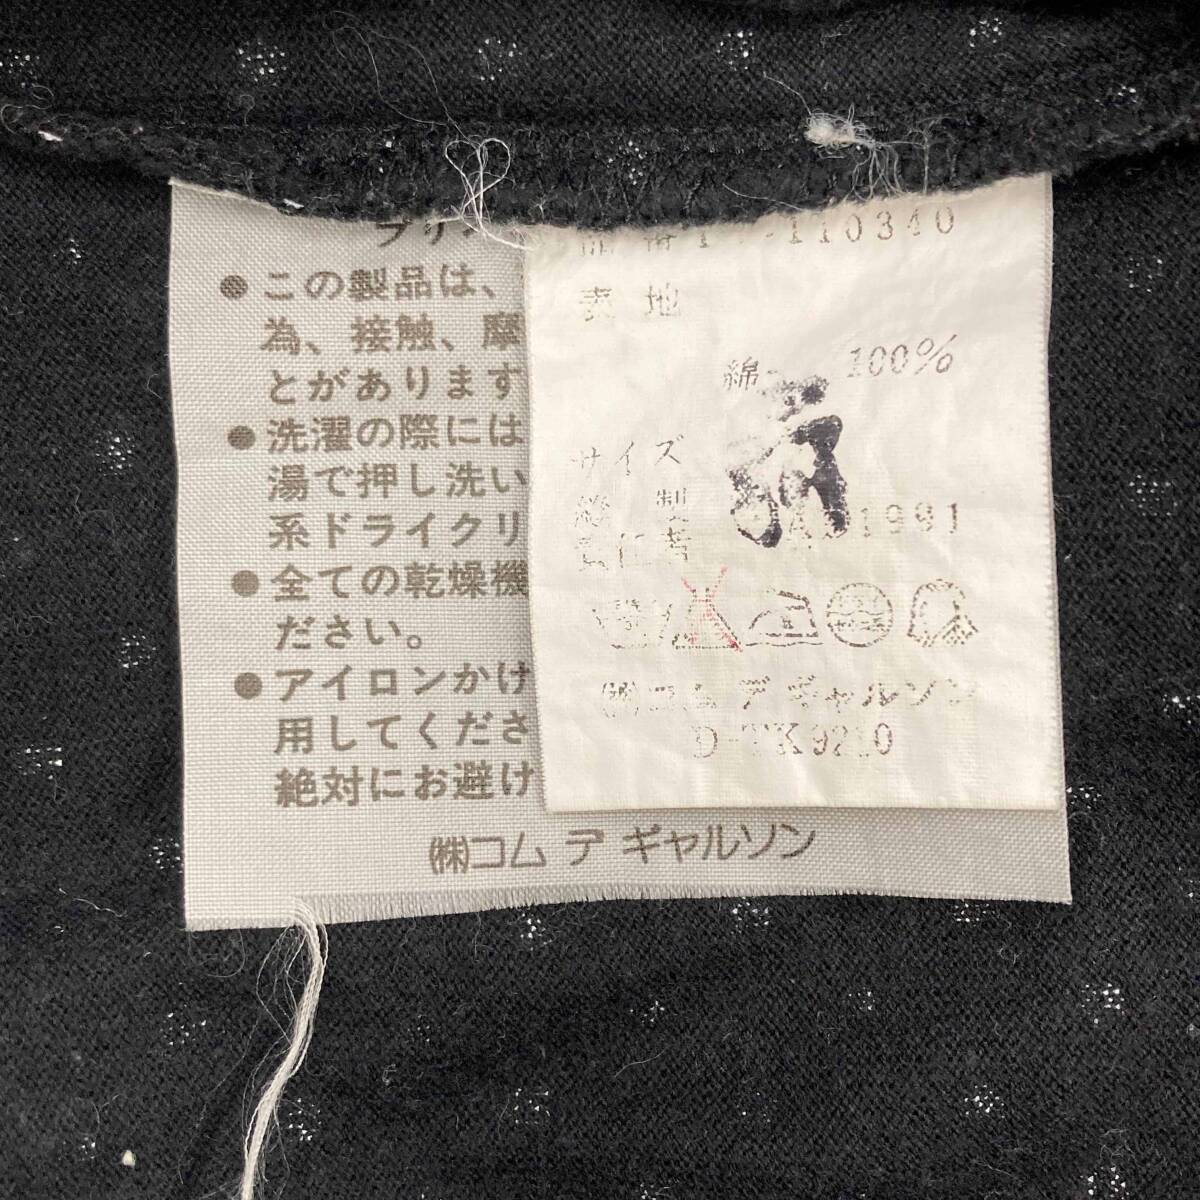 ●この製品は、
為、接触、摩
とがあります
●洗濯の際には
湯で押し洗い
系ドライクリ
●全ての乾燥機
ださい。
●アイロンかけ
用してくださ
絶対にお避け
㈱コム デ ギャルソン
110340
表地
綿 100%
サイズ
縫製
責任者 AD1991
㈱コム デ ギャルソン
D-TK9210